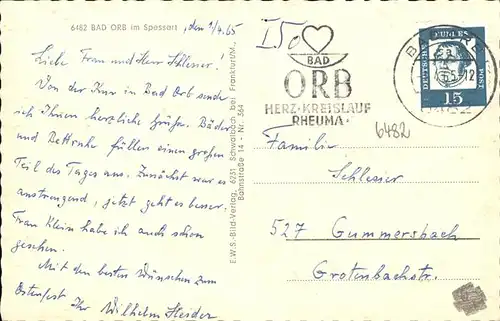 6482 BAD ORB im Spessart, den 1/4.65
Liebe Frau und Herr Schlesier!
Von der Kur in Bad Orb sende
ich Ihnen herzliche Grüße. Bäder
und Bettruhe füllen einen großen
Teil des Tages aus. Zunächst war es
anstrengend, jetzt geht es besser.
Frau Klein habe ich auch schon
gesehen.
Mit den besten Wünschen zum
Osterfest Ihr Wilhelm Heider
E.W.S.-Bild-Verlag, 6231 Schwalbach bei Frankfurt/M.
Bahnstraße 14 - Nr. 364
BAD
ORB
HERZ·KREISLAUF
RHEUMA·
DEUTSCHE BUNDESPOST
15
6482
Familie
Schlesier
527 Gummersbach
Grotenbachstr.